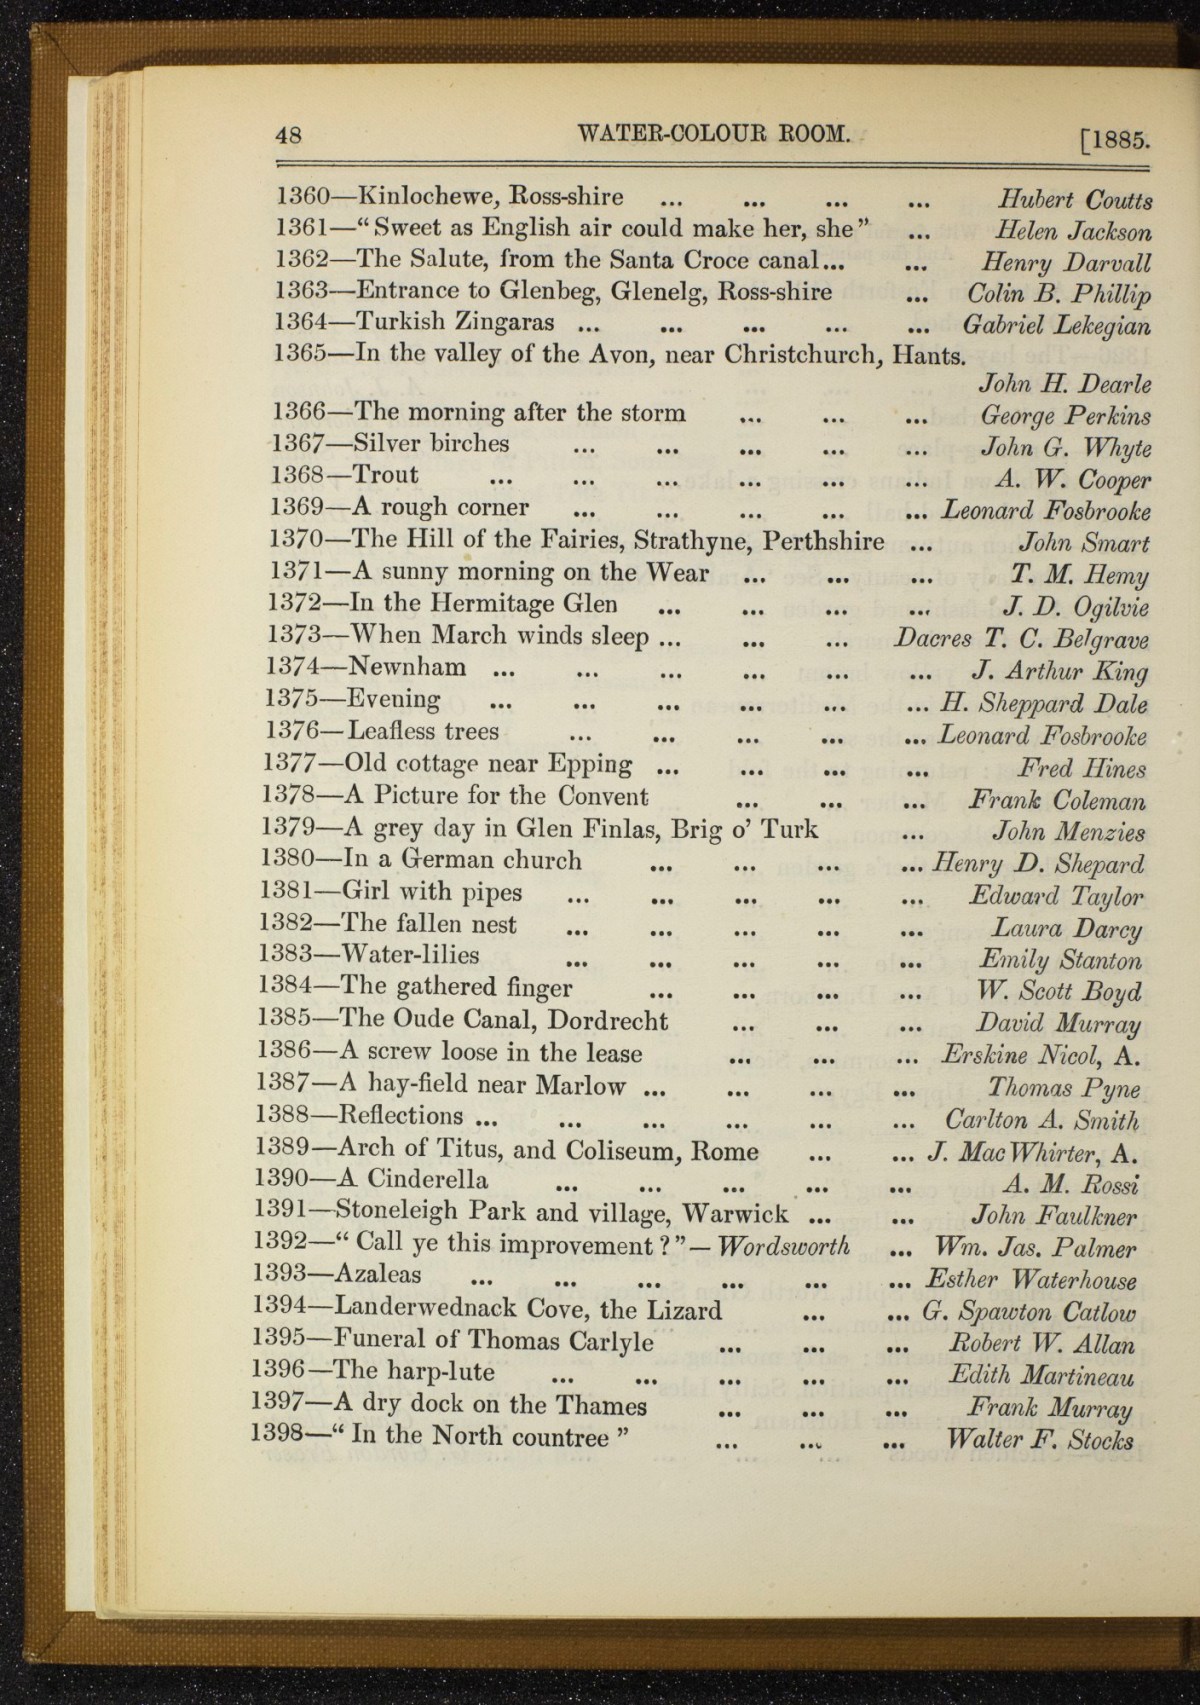 48 WATER-COLOUR ROOM. [1885.
1360—Kinlochewe, Ross-shire ... ... ... ... Hubert Coutts
1361—“Sweet as English air could make her, she” ... Helen Jackson
1362—The Salute, from the Santa Croce canal... ... Henry Darvall
1363—Entrance to Glenbeg, Glenelg, Ross-shire ... Colin B. Phillip
1364—Turkish Zingaras ... ... ... ... ... Gabriel Lekegian
1365—In the valley of the Avon, near Christchurch, Hants.
John H. Dearle
1366—The morning after the storm ... ... ... George Perkins
1367—Silver birches ... ... ... ... ... John G. Whyte
1368—Trout ... ... ... ... ... ... A. W. Cooper
1369—A rough corner ... ... ... ... ... Leonard Fosbrooke
1370—The Hill of the Fairies, Strathyne, Perthshire ... John Smart
1371—A sunny morning on the Wear ... ... ... T. M. Hemy
1372—In the Hermitage Glen ... ... ... ... J. D. Ogilvie
1373—When March winds sleep ... ... ... Dacres T. C. Belgrave
1374—Newnham ... ... ... ... ... ... J. Arthur King
1375—Evening ... ... ... ... ... ... H. Sheppard Dale
1376—Leafless trees ... ... ... ... ... Leonard Fosbrooke
1377—Old cottage near Epping ... ... ... ... Fred Hines
1378—A Picture for the Convent ... ... ... Frank Coleman
1379—A grey day in Glen Finlas, Brig o’ Turk ... John Menzies
1380—In a German church ... ... ... ... Henry D. Shepard
1381—Girl with pipes ... ... ... ... ... Edward Taylor
1382—The fallen nest ... ... ... ... ... Laura Darcy
1383—Water-lilies ... ... ... ... ... Emily Stanton
1384—The gathered finger ... ... ... ... W. Scott Boyd
1385—The Oude Canal, Dordrecht ... ... ... David Murray
1386—A screw loose in the lease ... ... ... Erskine Nicol, A.
1387—A hay-field near Marlow ... ... ... ... Thomas Pyne
1388—Reflections ... ... ... ... ... ... Carlton A. Smith
1389—Arch of Titus, and Coliseum, Rome ... ... J. MacWhirter, A.
1390—A Cinderella ... ... ... ... ... A. M. Rossi
1391—Stoneleigh Park and village, Warwick ... ... John Faulkner
1392—“Call ye this improvement?”—Wordsworth ... Wm. Jas. Palmer
1393—Azaleas ... ... ... ... ... ... Esther Waterhouse
1394—Landerwednack Cove, the Lizard ... ... G. Spawton Catlow
1395—Funeral of Thomas Carlyle ... ... ... Robert W. Allan
1396—The harp-lute ... ... ... ... ... Edith Martineau
1397—A dry dock on the Thames ... ... ... Frank Murray
1398—“In the North countree” ... ... ... Walter F. Stocks